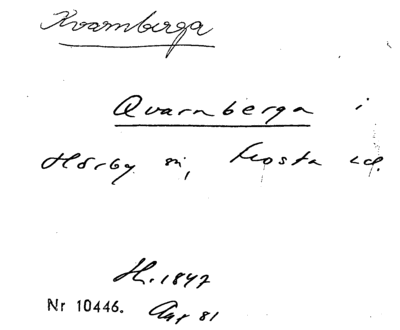 Kvarnberga
Qvarnberga i
Hörby sn, Frosta hd.
H. 1847
Nr 10446. Aug 81